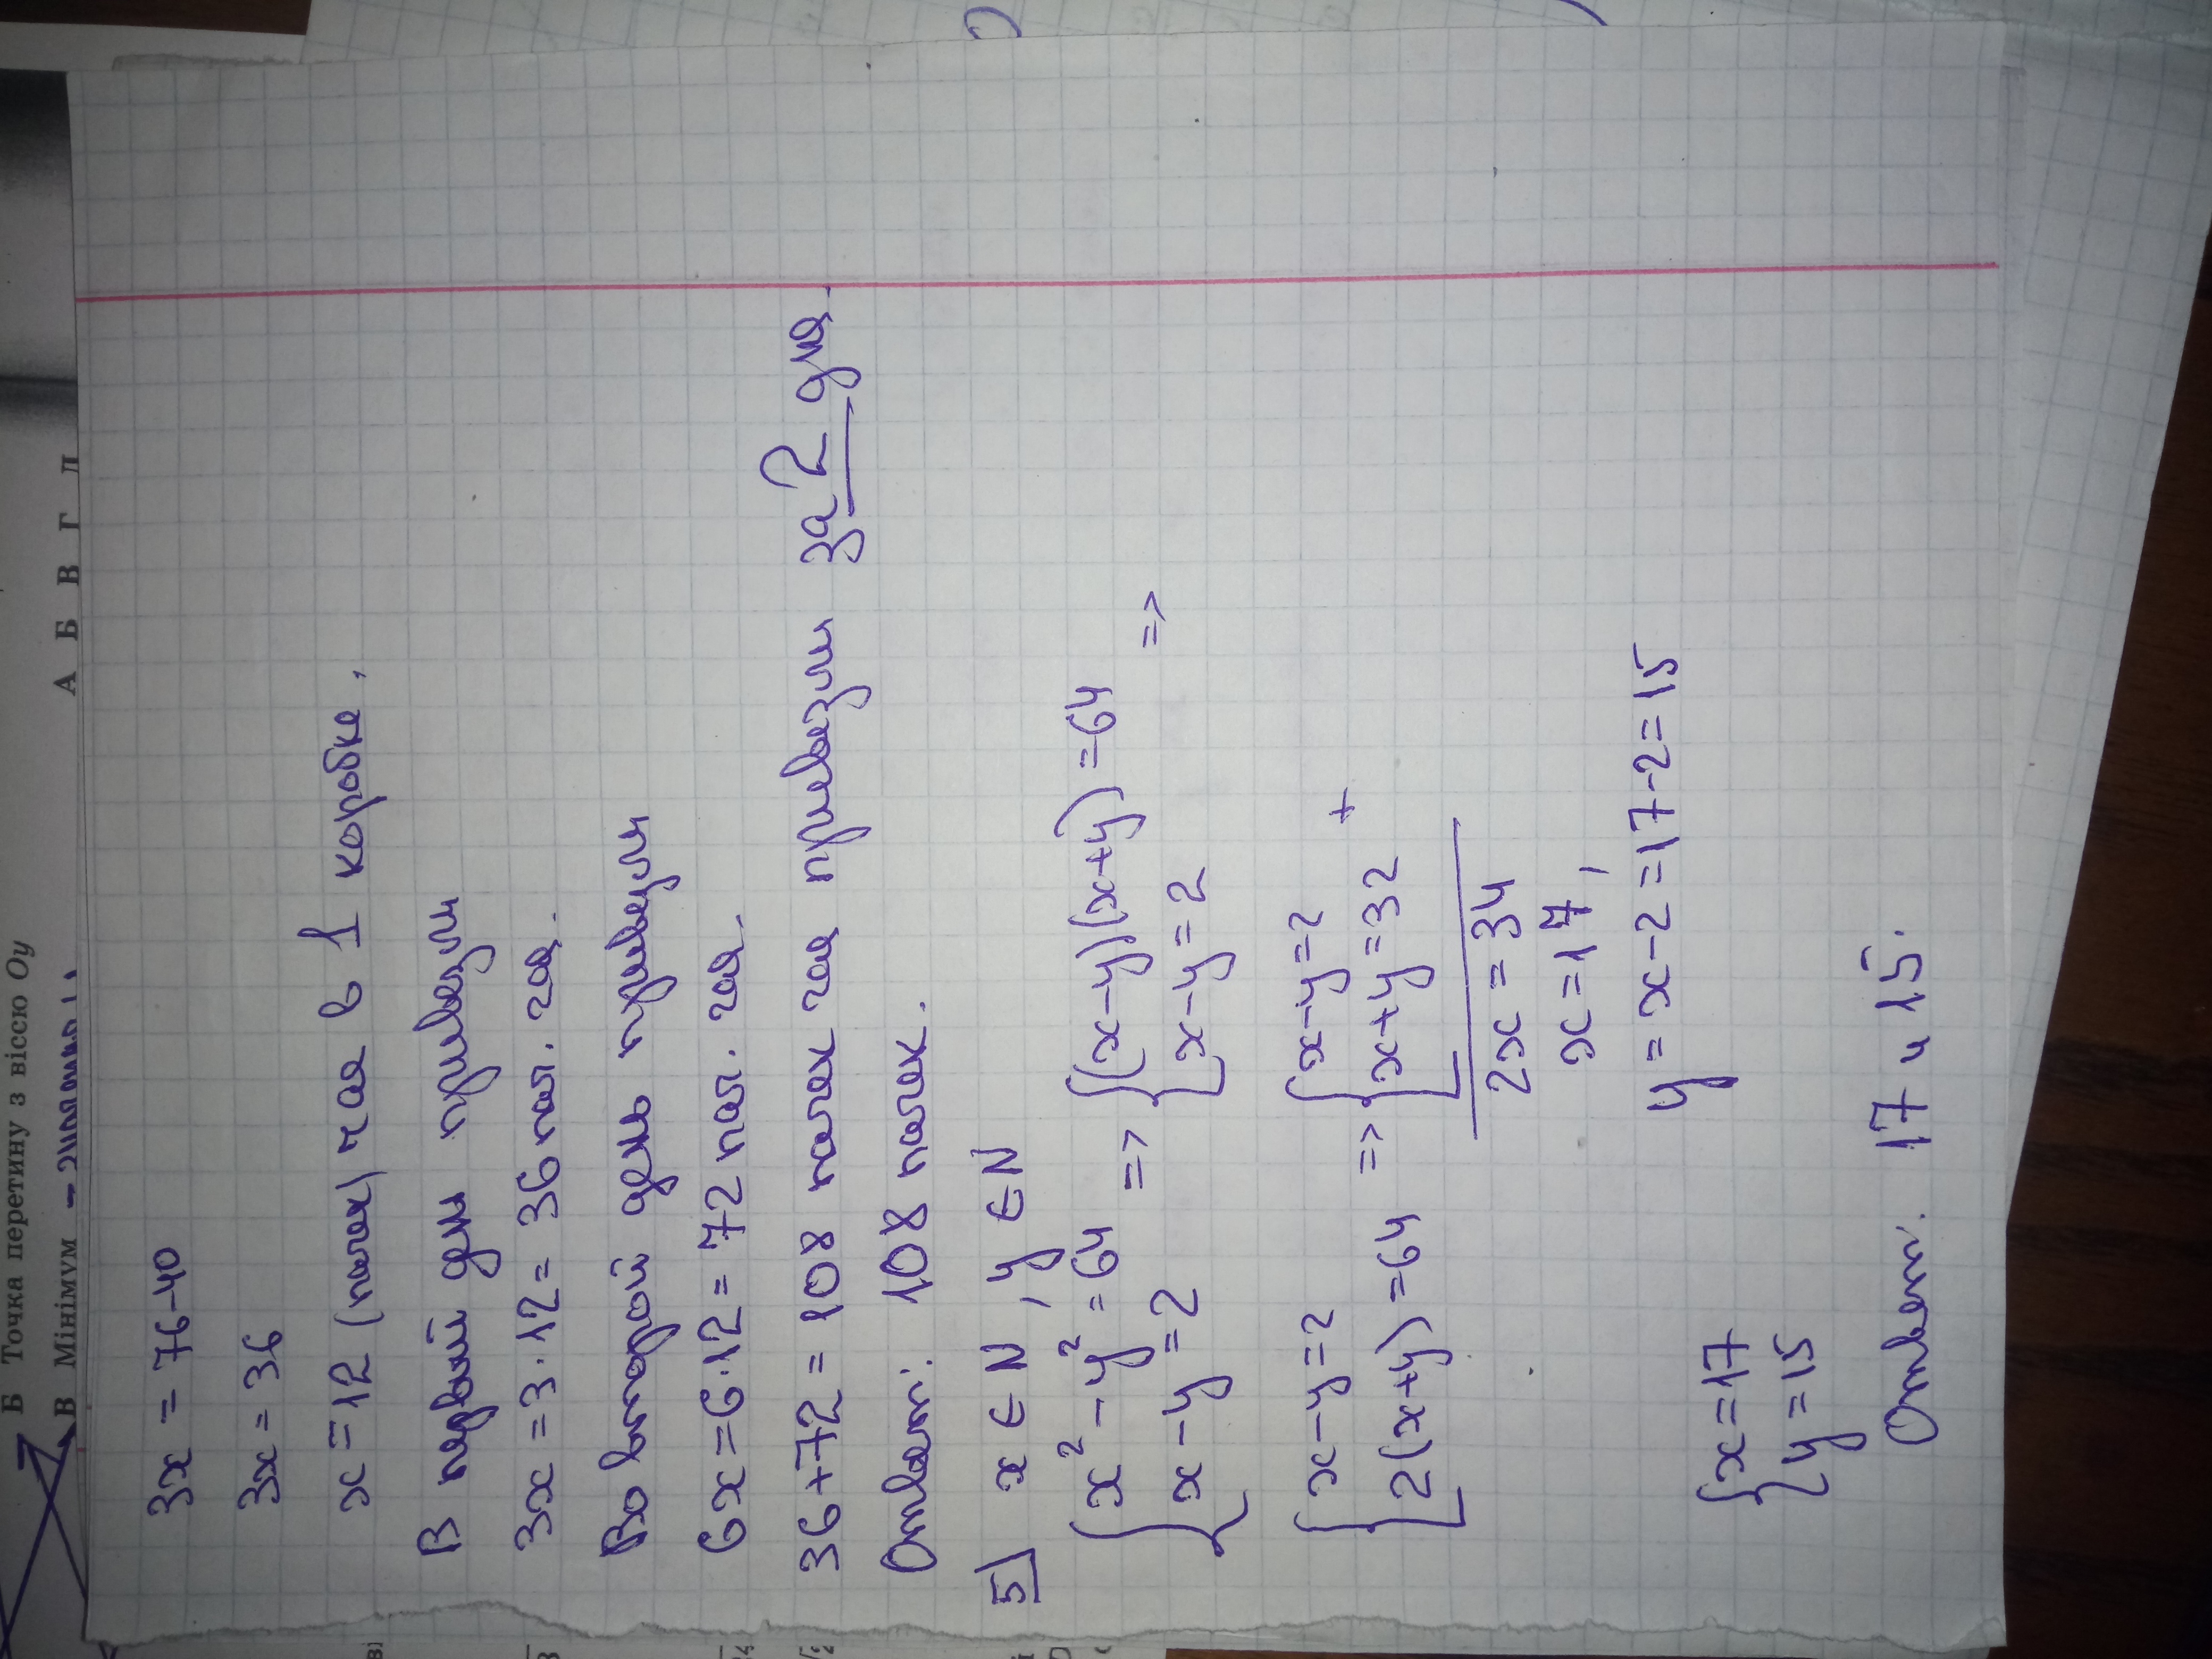 Б Точка перетину з віссю Oy
В Мінімум
А Б В Г Д
3x = 76-40
3x = 36
x = 12 (пачек) чая в 1 коробке.
В первый день привезли
3x = 3·12 = 36 пач. чая.
Во второй день привезли
6x = 6·12 = 72 пач. чая.
36+72 = 108 пачек чая привезли за 2 дня.
Ответ: 108 пачек.
5 x ∈ N, y ∈ N
{x² - y² = 64 => {(x-y)(x+y) = 64 =>
x - y = 2 x - y = 2
{x - y = 2 => {x - y = 2 +
2(x+y) = 64 x+y = 32
2x = 34
x = 17,
y = x-2 = 17-2 = 15
{x = 17
y = 15
Ответ. 17 и 15.